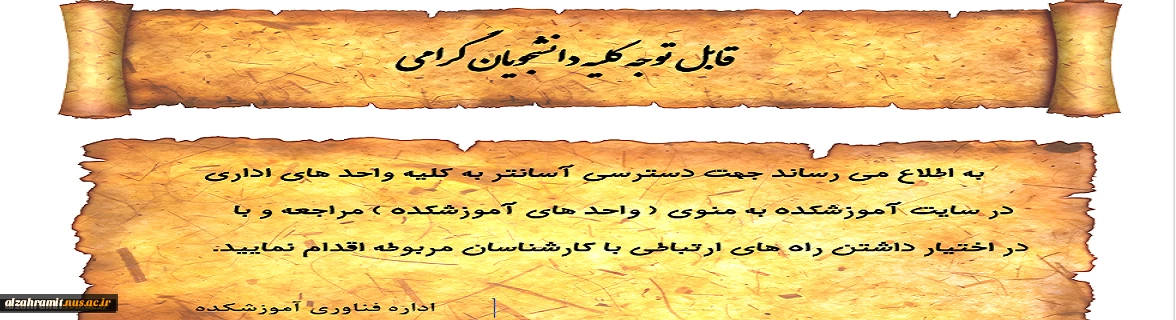 قابل توجه کلیه دانشجویان گرامی
به اطلاع می رساند جهت دسترسی آسانتر به کلیه واحد های اداری
در سایت آموزشکده به منوی ( واحد های آموزشکده ) مراجعه و با
در اختیار داشتن راه های ارتباطی با کارشناسان مربوطه اقدام نمایید.
اداره فناوری آموزشکده
alzahramit.nus.ac.ir